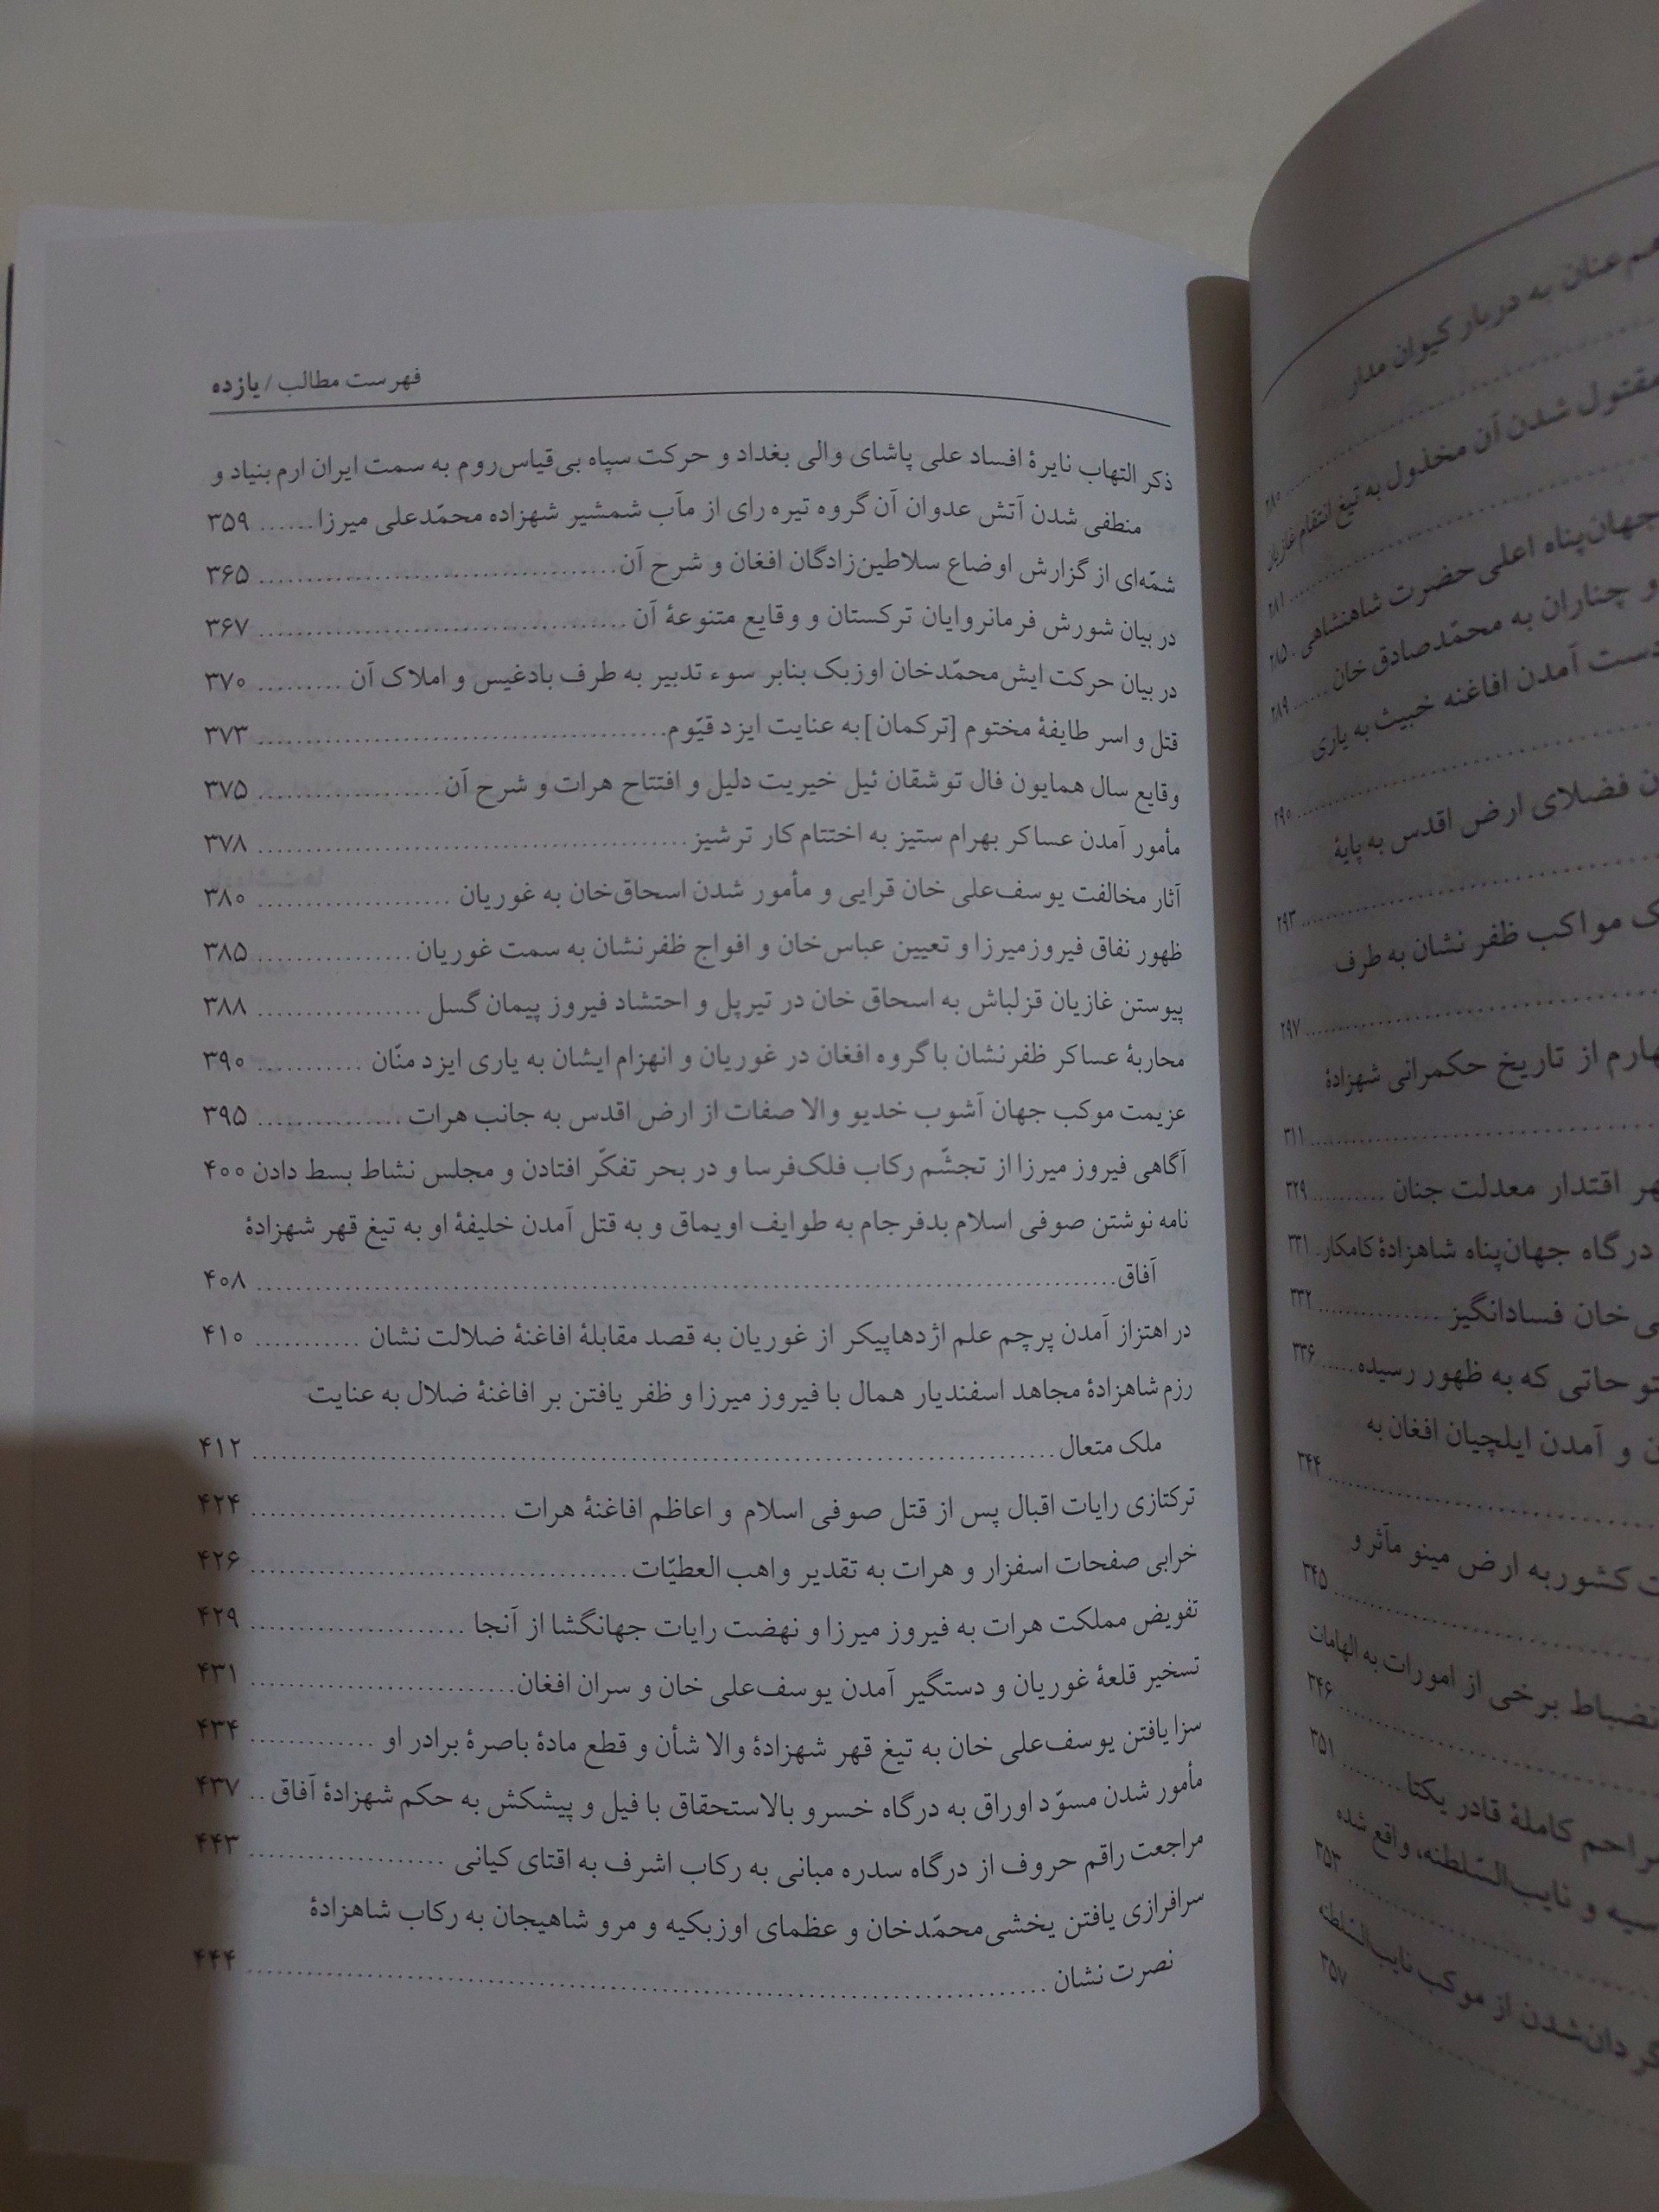 فهرست مطالب / یازده
ذکر التهاب نایرۀ افساد علی پاشای والی بغداد و حرکت سپاه بی‌قیاس روم به سمت ایران ارم بنیاد و
منطفی شدن آتش عدوان آن گروه تیره رای از مآب شمشیر شهزاده محمّدعلی میرزا ...... ۳۵۹
شمّه‌ای از گزارش اوضاع سلاطین‌زادگان افغان و شرح آن .................................... ۳۶۵
در بیان شورش فرمانروایان ترکستان و وقایع متنوعۀ آن .................................... ۳۶۷
در بیان حرکت ایش‌محمّدخان اوزبک بنابر سوء تدبیر به طرف بادغیس و املاک آن ......... ۳۷۰
قتل و اسر طایفۀ مختوم [ترکمان] به عنایت ایزد قیّوم ........................................ ۳۷۳
وقایع سال همایون فال توشقان ئیل خیریت دلیل و افتتاح هرات و شرح آن .................. ۳۷۵
مأمور آمدن عساکر بهرام ستیز به اختتام کار ترشیز .......................................... ۳۷۸
آثار مخالفت یوسف‌علی خان قرایی و مأمور شدن اسحاق‌خان به غوریان ................... ۳۸۰
ظهور نفاق فیروزمیرزا و تعیین عباس‌خان و افواج ظفرنشان به سمت غوریان ................ ۳۸۵
پیوستن غازیان قزلباش به اسحاق خان در تیرپل و احتشاد فیروز پیمان گسل ................. ۳۸۸
محاربۀ عساکر ظفرنشان با گروه افغان در غوریان و انهزام ایشان به یاری ایزد منّان ............ ۳۹۰
عزیمت موکب جهان آشوب خدیو والا صفات از ارض اقدس به جانب هرات ................ ۳۹۵
آگاهی فیروز میرزا از تجشّم رکاب فلک‌فرسا و در بحر تفکّر افتادن و مجلس نشاط بسط دادن ۴۰۰
نامه نوشتن صوفی اسلام بدفرجام به طوایف اویماق و به قتل آمدن خلیفۀ او به تیغ قهر شهزادۀ
آفاق ..................................................................................... ۴۰۸
در اهتزاز آمدن پرچم علم اژدهاپیکر از غوریان به قصد مقابلۀ افاغنۀ ضلالت نشان ........... ۴۱۰
رزم شاهزادۀ مجاهد اسفندیار همال با فیروز میرزا و ظفر یافتن بر افاغنۀ ضلال به عنایت
ملک متعال ............................................................................... ۴۱۲
ترکتازی رایات اقبال پس از قتل صوفی اسلام و اعاظم افاغنۀ هرات ......................... ۴۲۴
خرابی صفحات اسفزار و هرات به تقدیر واهب العطیّات ..................................... ۴۲۶
تفویض مملکت هرات به فیروز میرزا و نهضت رایات جهانگشا از آنجا ...................... ۴۲۹
تسخیر قلعۀ غوریان و دستگیر آمدن یوسف‌علی خان و سران افغان .......................... ۴۳۱
سزا یافتن یوسف‌علی خان به تیغ قهر شهزادۀ والا شأن و قطع مادۀ باصرۀ برادر او ............. ۴۳۴
مأمور شدن مسوّد اوراق به درگاه خسرو بالاستحقاق با فیل و پیشکش به حکم شهزادۀ آفاق .. ۴۳۷
مراجعت راقم حروف از درگاه سدره مبانی به رکاب اشرف به اقتای کیانی .................... ۴۴۳
سرافرازی یافتن یخشی‌محمّدخان و عظمای اوزبکیه و مرو شاهیجان به رکاب شاهزادۀ
نصرت نشان ............................................................................. ۴۴۴
هم‌عنان به دربار کیوان مدار
۲۸۰
مقتول شدن آن مخذول به تیغ انتقام غازیان
۲۸۱
جهان‌پناه اعلی حضرت شاهنشاهی . ۲۸۵
و چناران به محمّدصادق خان ...... ۲۸۹
دست آمدن افاغنه خبیث به یاری
۲۹۰
فضلای ارض اقدس به پایۀ
۲۹۳
مواکب ظفر نشان به طرف
۲۹۷
از تاریخ حکمرانی شهزادۀ
۳۱۱
اقتدار معدلت جنان .......... ۳۲۹
درگاه جهان‌پناه شاهزادۀ کامکار . ۳۳۱
خان فسادانگیز .............. ۳۳۲
که به ظهور رسیده ..... ۳۳۶
و آمدن ایلچیان افغان به
۳۴۴
کشور به ارض مینو مآثر و
۳۴۵
برخی از امورات به الهامات
۳۴۶
مراحم کاملۀ قادر یکتا ........ ۳۵۱
و نایب‌السّلطنه، واقع شده
۳۵۳
از موکب نایب‌السّلطنه
۳۵۷